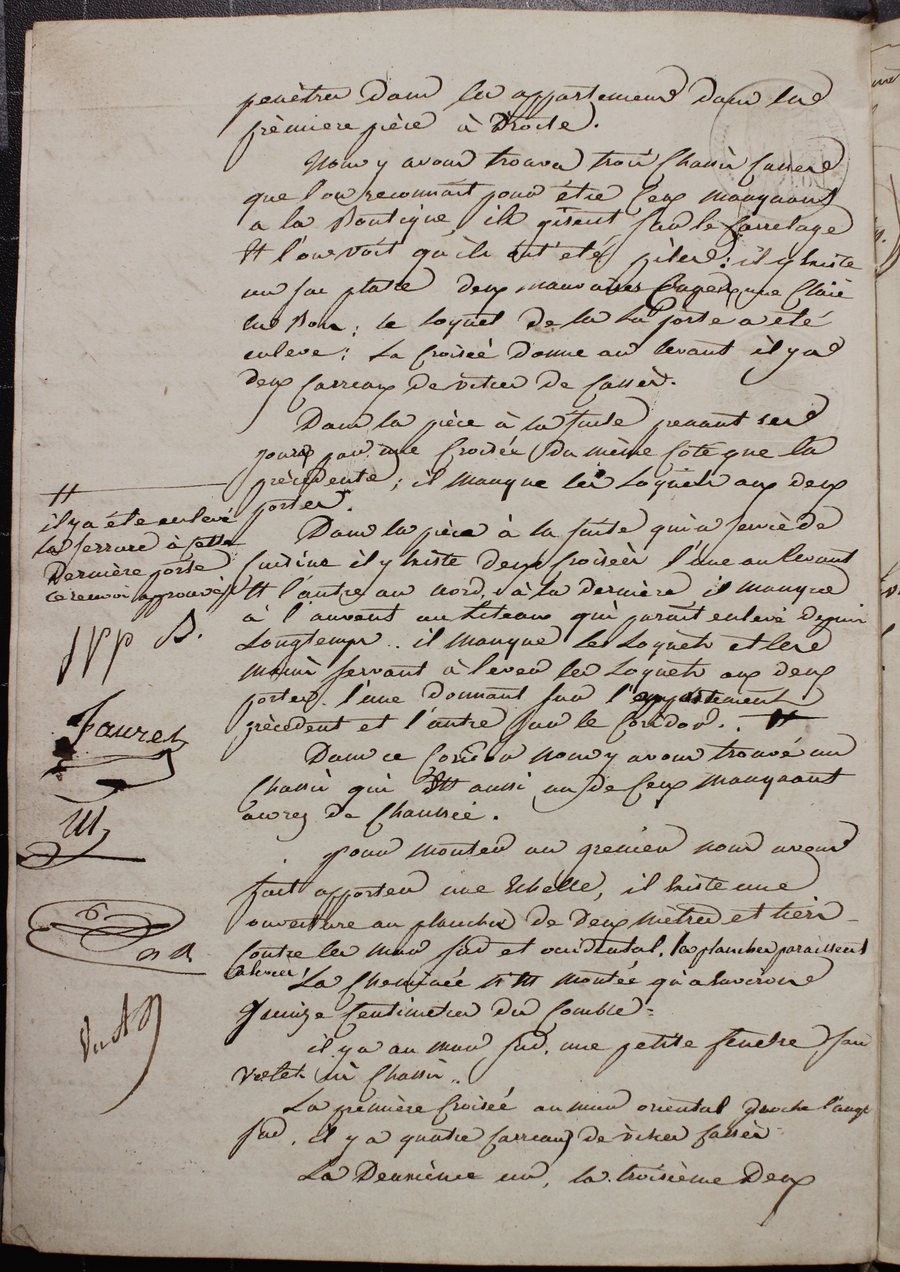 penétrer dans les appartements dans la
première pièce à Droite.
Nous y avons trouvé trois Chassis Cassés
que l'on reconnait pour être Ceux manquant
a la Boutique ils gisent sur le Carrelage
et l'on voit qu'ils ont été pilés: il y Existe
un deux mauvaises Cages une Claie
en Bois; le loquet de la porte a été
enlevé; La Croisée donne au levant il y a
deux Carreaux de vitres de Cassés.
Dans la pièce à la suite prenant ses
jours par une Croisée du même Côté que la
précédente; il manque les Loquets aux deux
portes.
Dans la pièce à la suite qui a servi de
Cuisine il y Existe deux Croisées l'une au levant
et l'autre au nord, à la dernière il manque
à l'auvent un Liteau qui parait enlevé depuis
Longtemps.. il manque les Loquets et les
mains servant à lever les Loquets aux deux
portes. l'une donnant sur l'appartement
précédent et l'autre sur le Coridor. #
Dans ce Coridor nous y avons trouvé un
Chassis qui Est aussi un de Ceux manquant
au rez de Chaussée.
Pour monter au grenier nous avons
fait apporter une Echelle, il Existe une
ouverture au plancher de Deux mètres et tiers
Contre les murs sud et occidental. les planches paraissent
La Cheminée n'Est montée qu'a environ
quinze Centimètres du Comble.
il y a au mur sud, une petite fenêtre sans
Volet ni Chassis..
La première Croisée au mur oriental proche l'angle
sud, il y a quatre Carreaux de vitres Cassés
La Deuxième un, la troisième Deux
#
il y a été enlevé
la serrure à cette
Dernière porte
Ce renvoi approuvé
B.
Faures